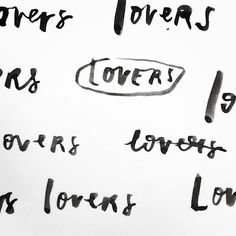 overs lovers
ers LOVERS
lo
overs lovers
rs lovers Lov